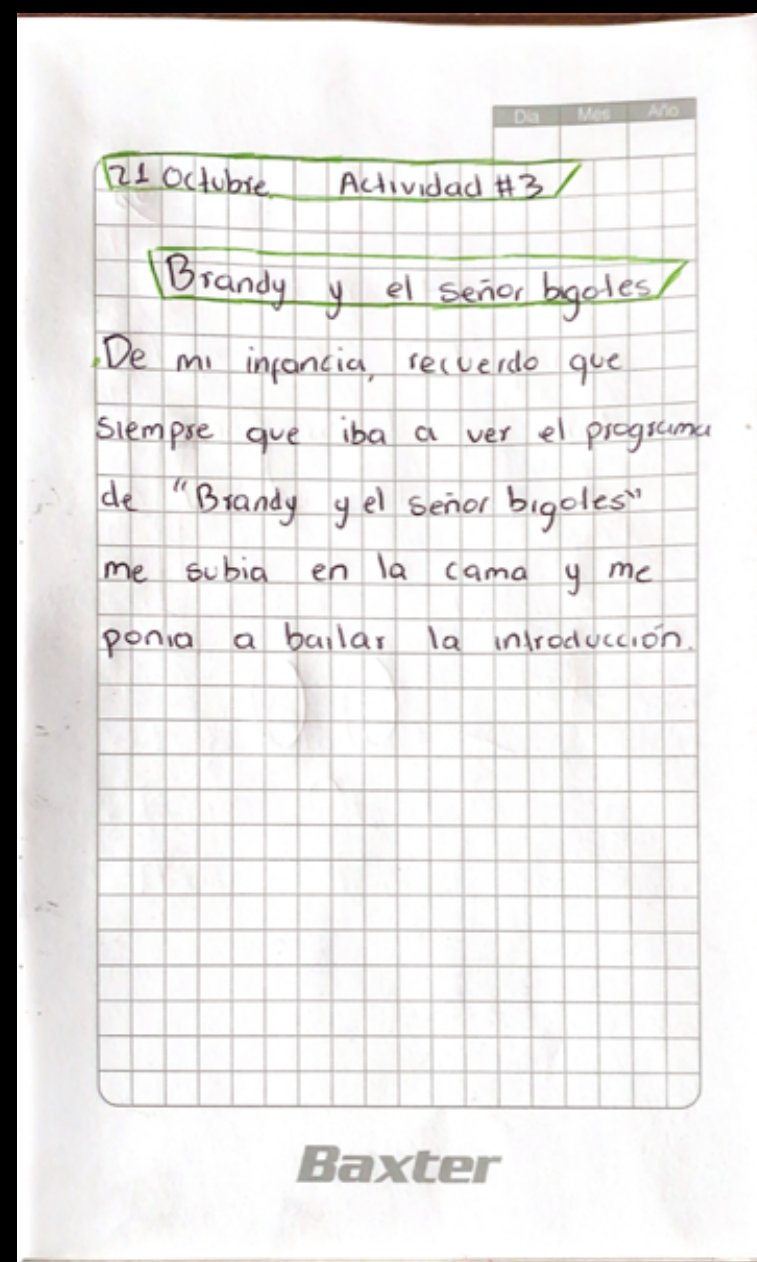 Dia Mes Año
21 Octubre Actividad #3
Brandy y el señor bigotes
De mi infancia, recuerdo que
siempre que iba a ver el programa
de "Brandy y el señor bigotes"
me subia en la cama y me
ponia a bailar la introducción.
Baxter